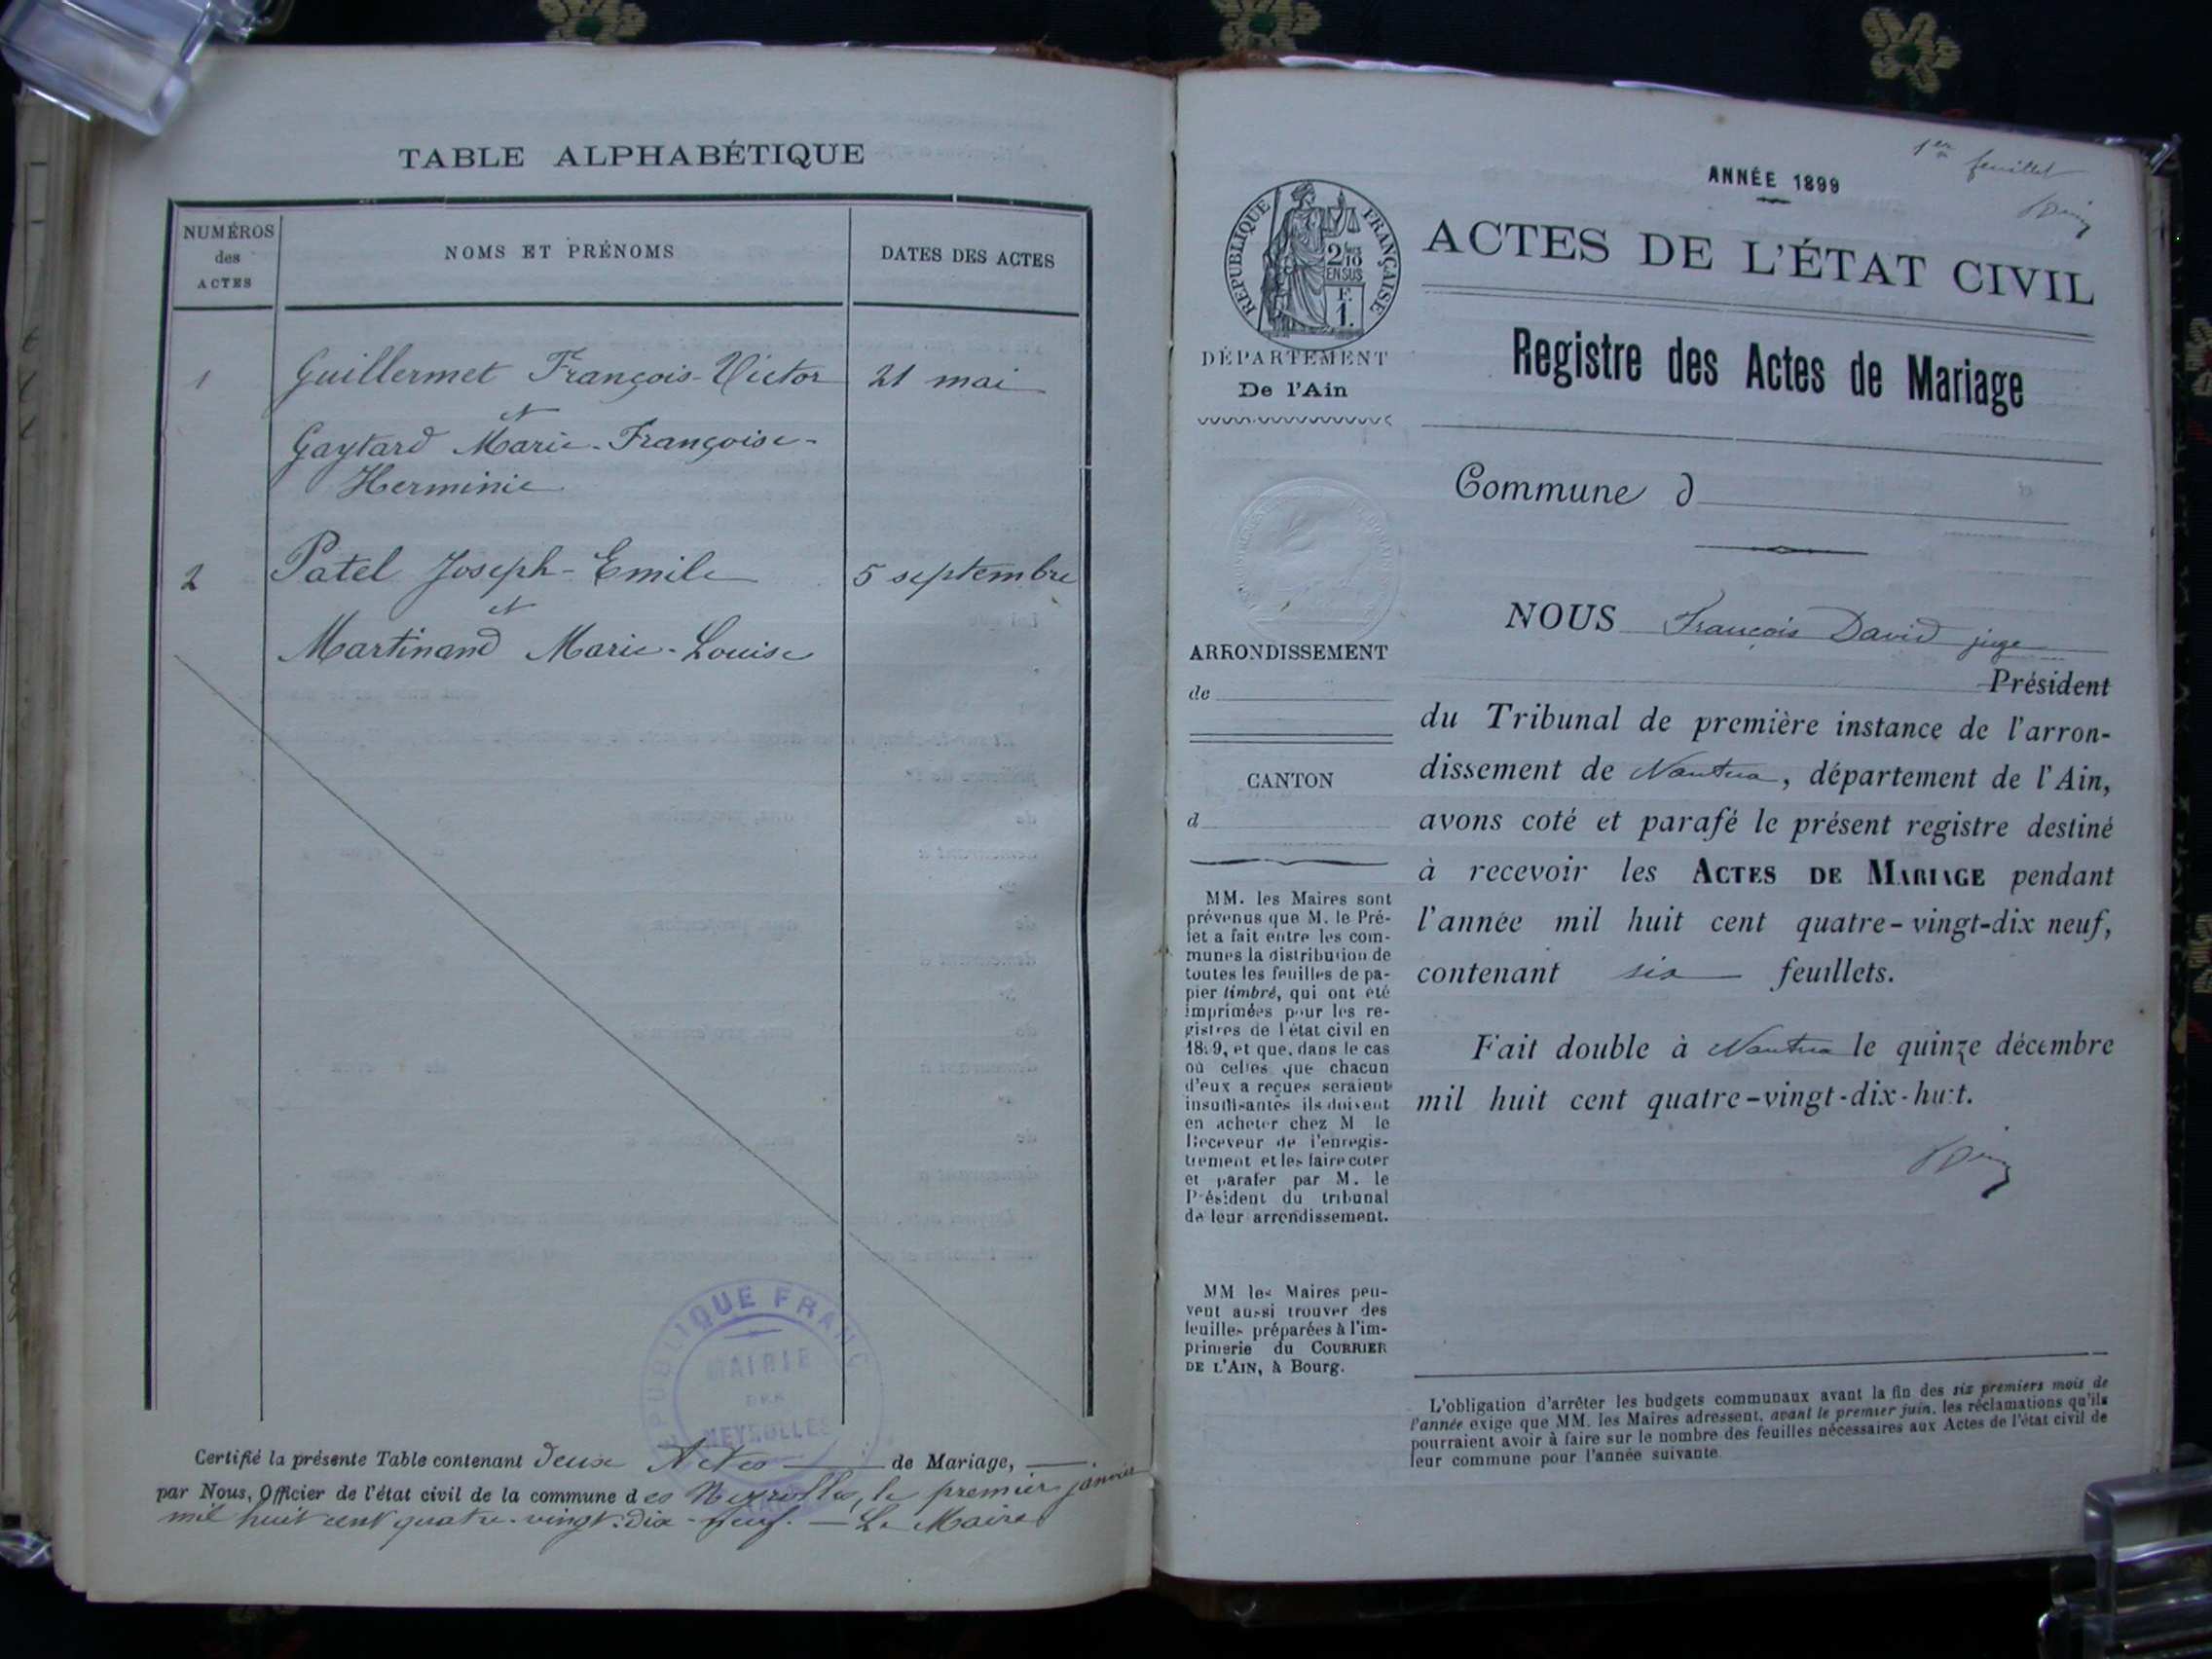 TABLE ALPHABÉTIQUE
NUMÉROS
des
ACTES
NOMS ET PRÉNOMS
DATES DES ACTES
1
Guillermet François-Victor
21 mai
et
Gaytard Marie-Françoise-
Herminie
2
Patel Joseph-Emile
5 septembre
et
Martinand Marie-Louise
RÉPUBLIQUE FRANÇ
MAIRIE
DES
NEYROLLES
Certifié la présente Table contenant deux Actes de Mariage,
par Nous, Officier de l'état civil de la commune des Neyrolles, le premier janvier
mil huit cent quatre-vingt-dix-neuf. — Le Maire
1er feuillet
ANNÉE 1899
RÉPUBLIQUE FRANÇAISE
2/10
EN SUS
F.
1.
DÉPARTEMENT
De l'Ain
ACTES DE L'ÉTAT CIVIL
Registre des Actes de Mariage
Commune d
ARRONDISSEMENT
de
CANTON
d
MM. les Maires sont
prévenus que M. le Pré-
fet a fait entre les com-
munes la distribution de
toutes les feuilles de pa-
pier timbré, qui ont été
imprimées pour les re-
gistres de l'état civil en
1899, et que, dans le cas
où celles que chacun
d'eux a reçues seraient
insuffisantes ils doivent
en acheter chez M le
Receveur de l'enregis-
trement et les faire coter
et parafer par M. le
Président du tribunal
de leur arrondissement.
MM les Maires peu-
vent aussi trouver des
feuilles préparées à l'im-
primerie du COURRIER
DE L'AIN, à Bourg.
NOUS François David juge
Président
du Tribunal de première instance de l'arron-
dissement de Nantua, département de l'Ain,
avons coté et parafé le présent registre destiné
à recevoir les ACTES DE MARIAGE pendant
l'année mil huit cent quatre-vingt-dix neuf,
contenant six feuillets.
Fait double à Nantua le quinze décembre
mil huit cent quatre-vingt-dix-huit.
L'obligation d'arrêter les budgets communaux avant la fin des six premiers mois de
l'année exige que MM. les Maires adressent, avant le premier juin, les réclamations qu'ils
pourraient avoir à faire sur le nombre des feuilles nécessaires aux Actes de l'état civil de
leur commune pour l'année suivante.